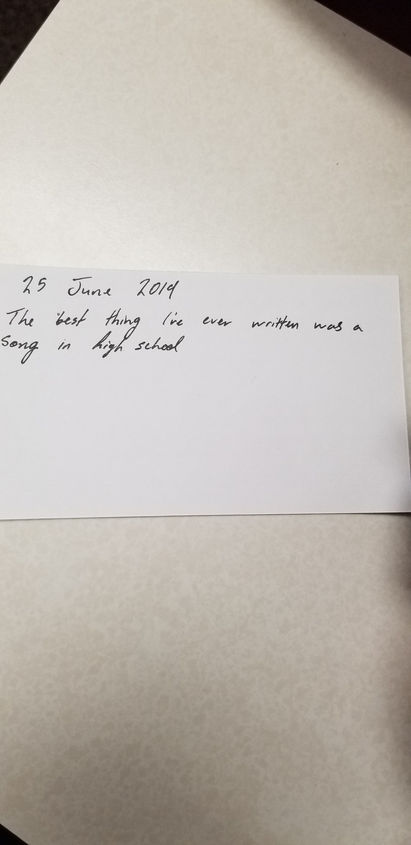 25 June 2019
The best thing I've ever written was a
song in high school